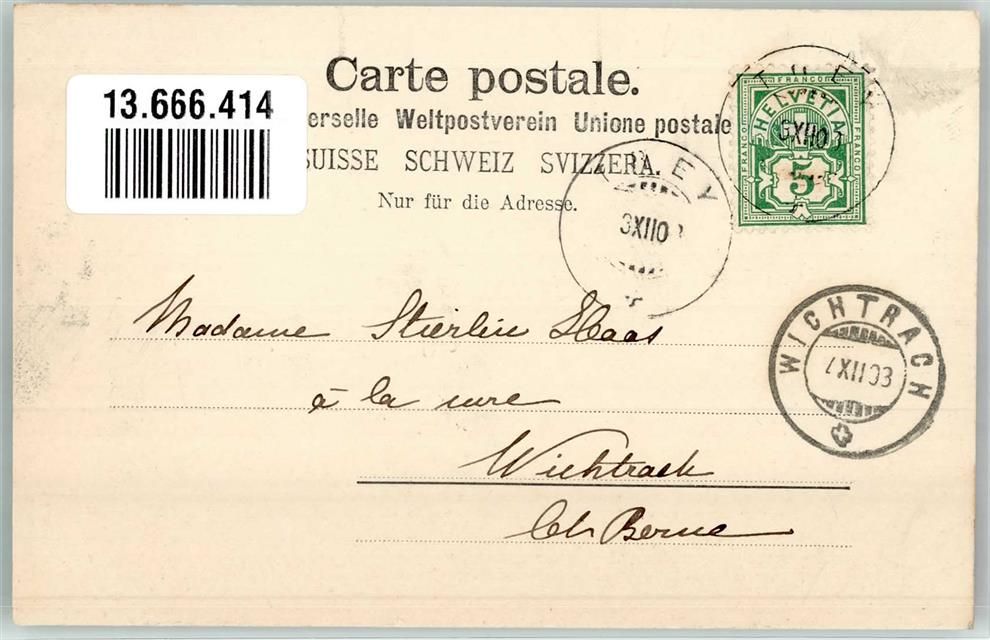 13.666.414
Carte postale.
erselle Weltpostverein Unione postale
SUISSE SCHWEIZ SVIZZERA.
Nur für die Adresse.
FRANCO
FRANCO
FRANCO
HELVETIA
5
WICHTRACH
7XII03
Madame Stierlin Haas
à la cure
Wichtrach
Ct. Berne